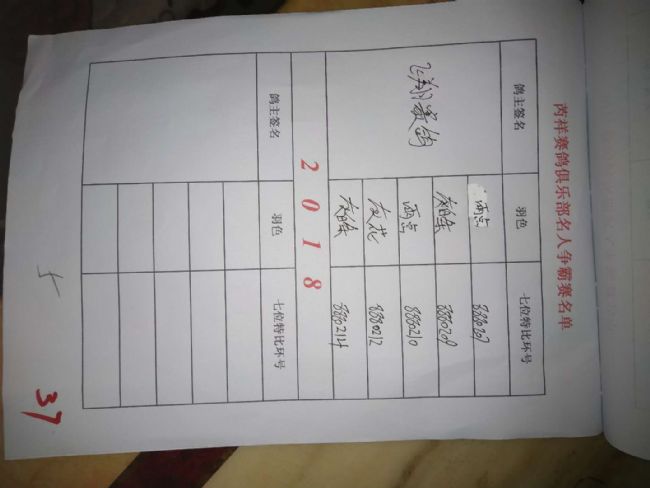 芮样赛鸽俱乐部名人争霸赛名单
鸽主签名 羽色 七位特比环号
飞翔赛鸽 雨点 8880207
灰白条 8880209
雨点 8880210
灰花 8880212
灰白条 8880214
2018
鸽主签名 羽色 七位特比环号
37